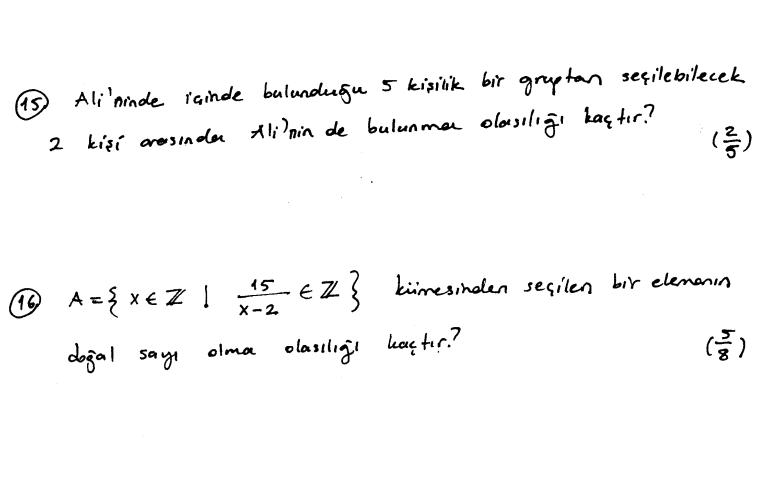 15) Ali'ninde içinde bulunduğu 5 kişilik bir gruptan seçilebilecek
2 kişi arasında Ali'nin de bulunma olasılığı kaçtır? (2/5)
16) A = { x ∈ ℤ | 15/(x-2) ∈ ℤ } kümesinden seçilen bir elemanın
doğal sayı olma olasılığı kaçtır? (5/8)